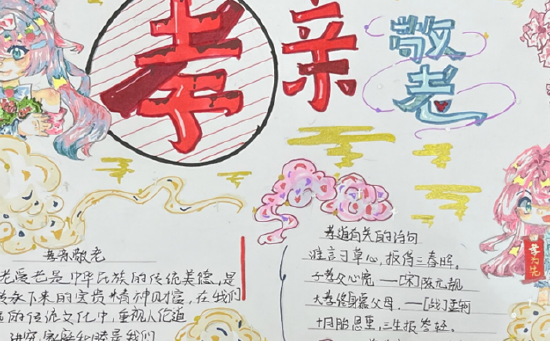 孝亲敬老
孝亲敬老
老爱老是中华民族的传统美德,是
下来的宝贵精神财富,在我们
的传统文化中,重视人伦道
讲究家庭和睦是我们
孝道有关的诗句
谁言寸草心,报得三春晖。
子孝父心宽 ——【宋】陈元靓
大孝终身慕父母。——【战】孟轲
十月胎恩重,三生报答轻。
孝为先